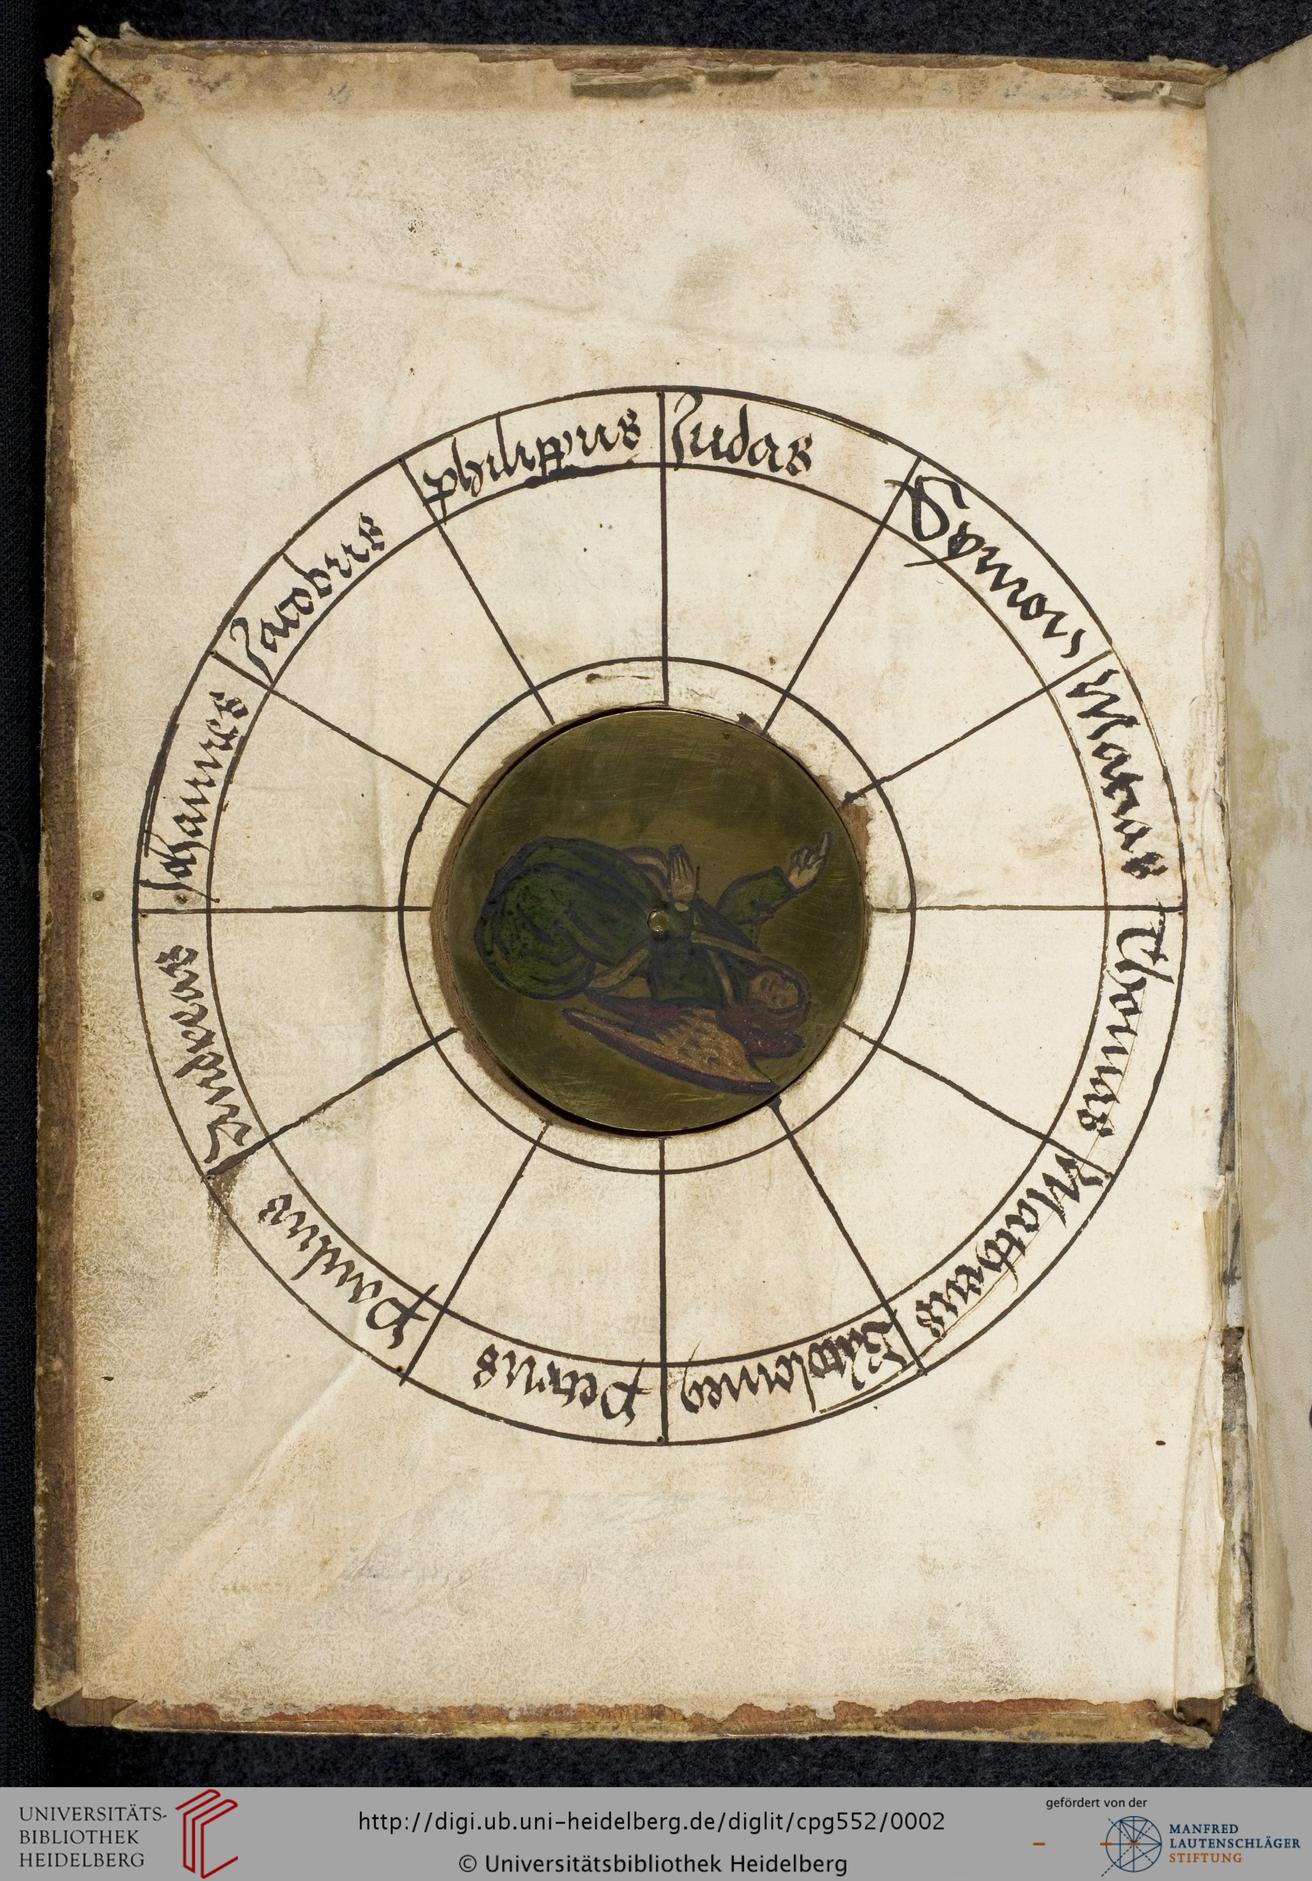 Judas
Symon
Matias
Thomas
Matheus
Petrus
Paulus
Andreas
Johannes
Jacobus
philippus
UNIVERSITÄTS-
BIBLIOTHEK
HEIDELBERG
http://digi.ub.uni-heidelberg.de/diglit/cpg552/0002
© Universitätsbibliothek Heidelberg
gefördert von der
MANFRED
LAUTENSCHLÄGER
STIFTUNG